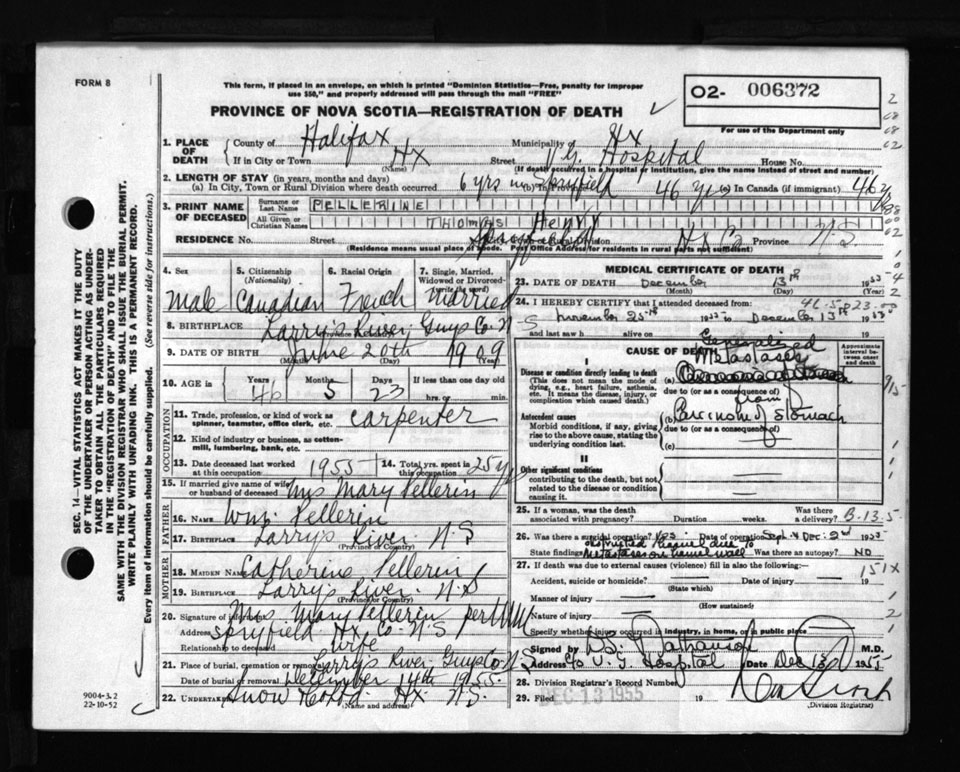 FORM 8
This form, if placed in an envelope, on which is printed "Dominion Statistics—Free, penalty for improper
use $50," and properly addressed will pass through the mail "FREE"
PROVINCE OF NOVA SCOTIA—REGISTRATION OF DEATH
O2- 006372
For use of the Department only
SEC. 14—VITAL STATISTICS ACT MAKES IT THE DUTY
OF THE UNDERTAKER OR PERSON ACTING AS UNDER-
TAKER TO OBTAIN ALL THE PARTICULARS REQUIRED
IN THE "REGISTRATION OF DEATH" AND TO FILE THE
SAME WITH THE DIVISION REGISTRAR WHO SHALL ISSUE THE BURIAL PERMIT.
WRITE PLAINLY WITH UNFADING INK. THIS IS A PERMANENT RECORD.
Every item of information should be carefully supplied. (See reverse side for instructions.)
1. PLACE OF DEATH
County of Halifax Municipality of Hx
If in City or Town Hx Street V.G. Hospital House No.
(Name) (If death occurred in a hospital or institution, give the name instead of street and number)
2. LENGTH OF STAY (in years, months and days)
(a) In City, Town or Rural Division where death occurred 6 yrs in Spryfield (b) In 46 yrs (c) In Canada (if immigrant) 46 yrs
3. PRINT NAME OF DECEASED
Surname or Last Name PELLERINE
All Given or Christian Names THOMAS HENRY
RESIDENCE No. Street Spryfield Rural Division Hx Co Province N.S.
(Residence means usual place of abode. Post Office Address for residents in rural parts not sufficient)
4. Sex Male
5. Citizenship (Nationality) Canadian
6. Racial Origin French
7. Single, Married, Widowed or Divorced- (write the word) Married
8. BIRTHPLACE Larry's River Guys Co. N-S
9. DATE OF BIRTH June 20th 1909
(Month) (Day)
10. AGE in Years 46 Months 5 Days 23 If less than one day old
hrs. or min.
OCCUPATION
11. Trade, profession, or kind of work as
spinner, teamster, office clerk, etc. carpenter
12. Kind of industry or business, as cotton-
mill, lumbering, bank, etc.
13. Date deceased last worked
at this occupation 1955
14. Total yrs. spent in
this occupation 25 yrs
15. If married give name of wife
or husband of deceased Mrs Mary Pellerin
FATHER
16. NAME Wm. Pellerin
17. BIRTHPLACE Larry's River N-S
(Province or Country)
MOTHER
18. MAIDEN NAME Catherine Pellerin
19. BIRTHPLACE Larry's River N-S
(Province or Country)
20. Signature of informant Mrs Mary Pellerin per
Address Spryfield Hx Co N-S
Relationship to deceased wife
21. Place of burial, cremation or removal Larry's River, Guys Co. N-S
Date of burial or removal December 14th 1955
22. UNDERTAKER Snow Co Ltd. Hx N.S.
(Name and address)
9004-3.2
22-10-52
MEDICAL CERTIFICATE OF DEATH
23. DATE OF DEATH December 13th 1955
(Month) (Day) (Year)
24. I HEREBY CERTIFY that I attended deceased from:
November 25th 1955 to December 13th 1955
and last saw h alive on 19
CAUSE OF DEATH
Approximate interval between onset and death
I
Disease or condition directly leading to death
(This does not mean the mode of
dying, e.g., heart failure, asthenia,
etc. It means the disease, injury, or
complication which caused death.)
Generalized
Metastases
(a)
due to (or as a consequence of) from
Antecedent causes
Morbid conditions, if any, giving
rise to the above cause, stating the
underlying condition last.
(b) Carcinoma of Stomach
due to (or as a consequence of)
(c)
II
Other significant conditions
contributing to the death, but not
related to the disease or condition
causing it.
25. If a woman, was the death
associated with pregnancy? Duration weeks. Was there a delivery? B-13-5
26. Was there a surgical operation? Yes Date of operation Sept. & Dec. 2nd 1955
State findings obstructed due to Metastases on wall Was there an autopsy? NO
27. If death was due to external causes (violence) fill in also the following:— 151X
Accident, suicide or homicide? Date of injury 19
(State which)
Manner of injury
(How sustained)
Nature of injury
Specify whether injury occurred in industry, in home, or in public place
Signed by D.S. Nathanson M.D.
Address c/o V.G. Hospital Date Dec 13 1955
28. Division Registrar's Record Number
29. Filed DEC 13 1955 19
(Division Registrar)